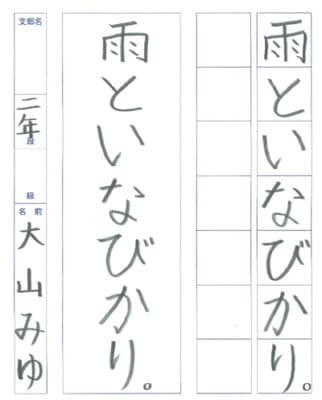 雨といなびかり。
雨といなびかり。
支部名
二年
段
級
名前
大山みゆ